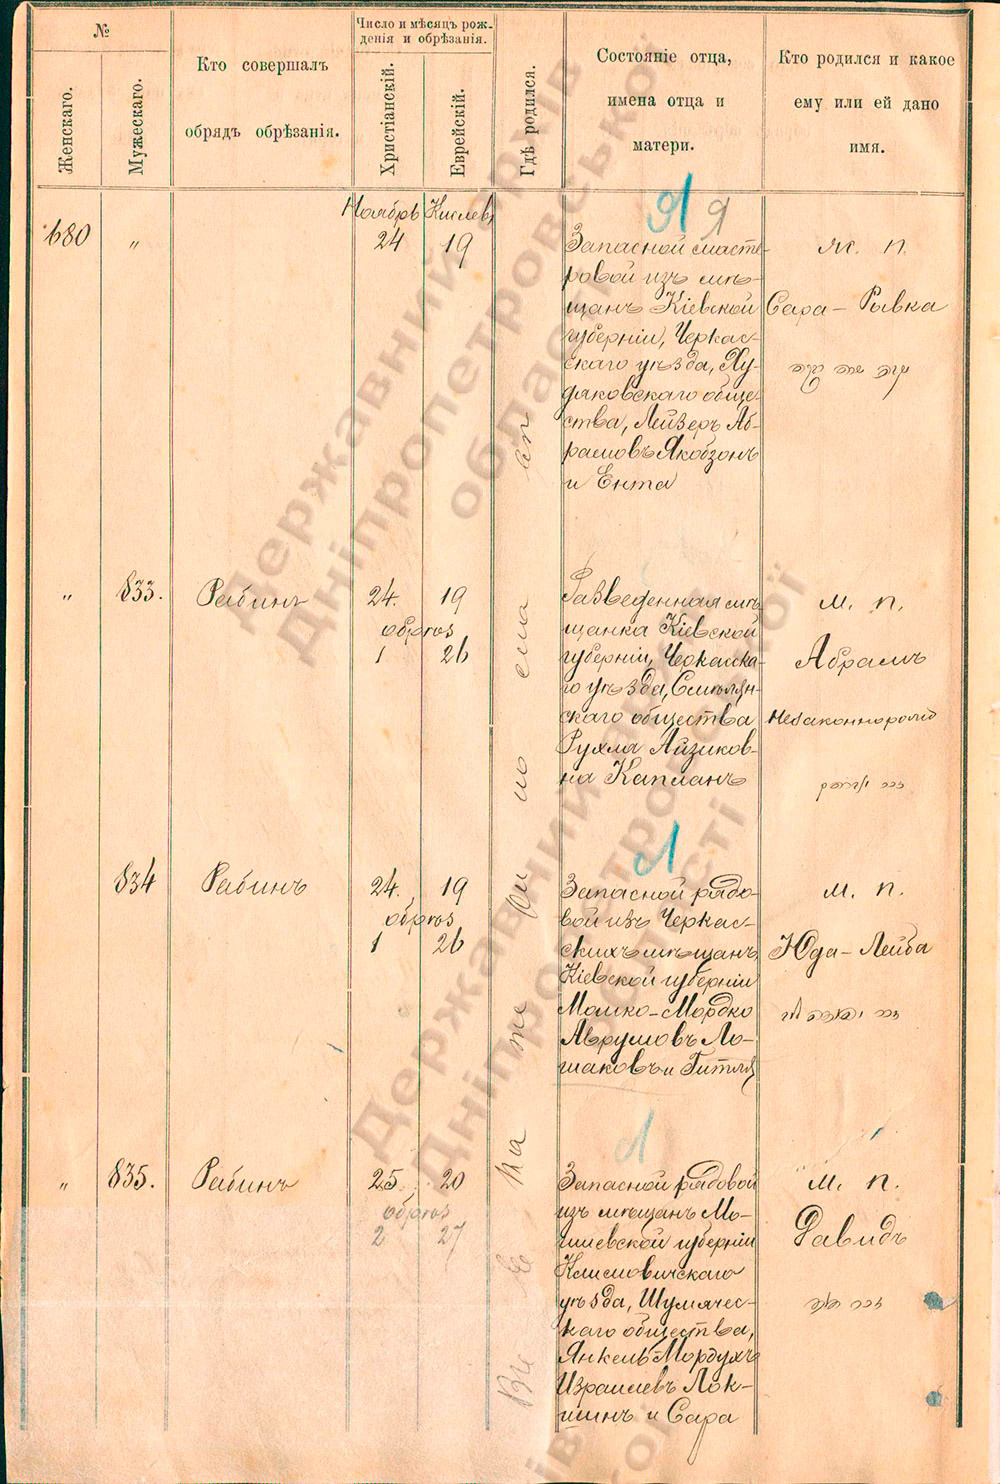 №
Женскаго.
Мужескаго.
Кто совершалъ
обрядъ обрѣзанія.
Число и мѣсяцъ рож-
денія и обрѣзанія.
Христіанскій.
Еврейскій.
Гдѣ родился.
Состояніе отца,
имена отца и
матери.
Кто родился и какое
ему или ей дано
имя.
Ноябрь Кислевъ
Л Я
680 " 24 19
Запасной масте-
ровой изъ мѣ-
щанъ Кіевской
губерніи, Черкас-
скаго уѣзда, Ху-
дяковскаго обще-
ства, Лейзеръ Аб-
рамовъ Якобзонъ
и Ента
ж. п.
Сара-Рывка
" 833. Рабинъ 24. 19
обрѣз
1 26
Разведенная мѣ-
щанка Кіевской
губерніи, Черкасска-
го уѣзда, Смѣлян-
скаго общества
Рухля Айзиков-
на Капланъ
м. п.
Абрамъ
Незаконнорожд
Л
834 Рабинъ 24. 19
обрѣз
1 26
Запасной рядо-
вой изъ Черкас-
скихъ мѣщанъ
Кіевской губерніи
Мошко-Мордко
Аврумовъ Ло-
шаковъ и Гитля
м. п.
Юда-Лейба
Л
" 835. Рабинъ 25. 20
обрѣз
2 27
Запасной рядовой
изъ мѣщанъ Мо-
гилевской губерніи
Климовичскаго
уѣзда, Шумячес-
каго общества,
Янкель-Мордухъ
Израилевъ Лок-
шинъ и Сара
м. п.
Давидъ
Державний архів
Дніпропетровської
області
Державний архів
Дніпропетровської
області